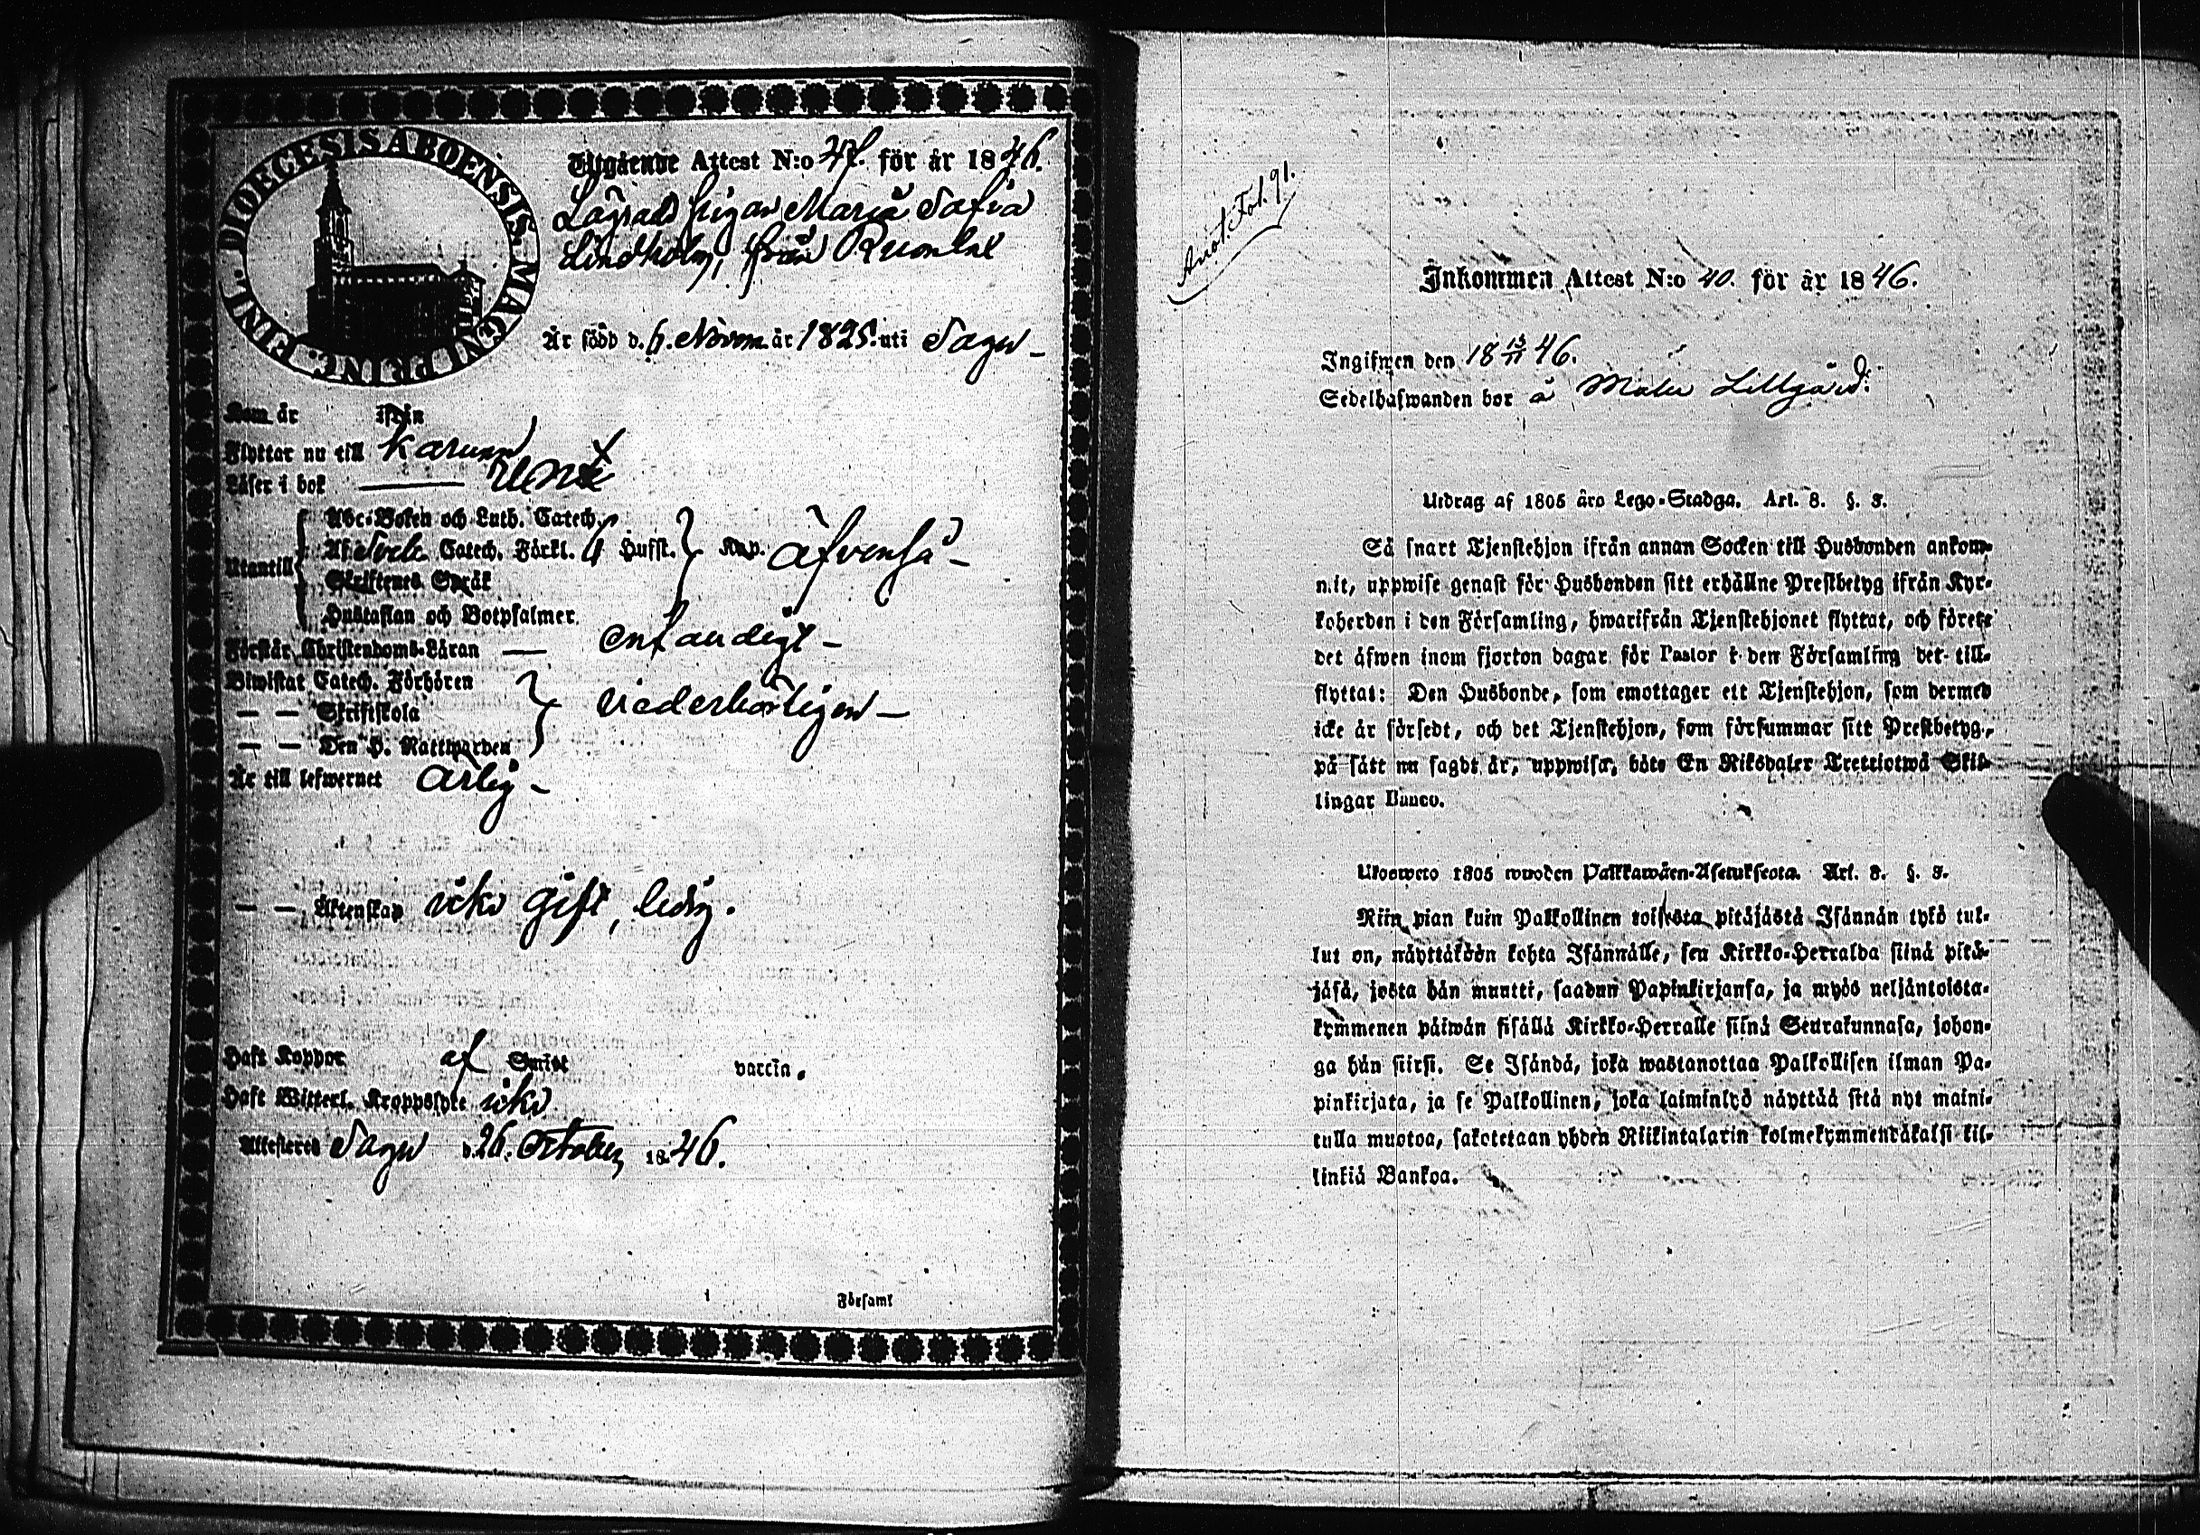 FINL. DIOECESIS ABOENSIS. MAGNI PRINC.
Utgående Attest N:o 47. för år 1846.
pigan Maria Sofia
Lindholm, från
Är född d. 6. Novem. år 1825. uti Sagu
Kom år ifrån
Flyttar nu till Karuna
Läser i bok
Utantill
Abc-Boken och Luth. Catech.
Af Sveb. Catech. Förkl. Husst. Kap. äfvenså
Skriftenes Språk
Hustaflan och Botpsalmer.
Förstår Christendoms-Läran enfaldigt
Biwistat Catech. Förhören
— — Skriftskola vederbörligen
— — Den H. Nattwarden
Är till lefwernet ärlig
— — Äktenskap icke gift, ledig.
Haft Koppor af Smitt vaccin.
Haft Witterl. Kroppslyte icke
Attesteres Sagu d. 26. October 1846.
Församl
Anot. Fol. 91.
Inkommen Attest N:o 40. för år 1846.
Ingifwen den 18 13/11 46.
Sedelhafwanden bor å Lillgård.
Utdrag af 1805 års Lego-Stadga. Art. 8. §. 3.
Så snart Tjenstehjon ifrån annan Socken till Husbonden ankom-
mit, uppwise genast för Husbonden sitt erhållne Prestbetyg ifrån Kyr-
koherden i den Församling, hwarifrån Tjenstehjonet flyttat, och förete
det äfwen inom fjorton dagar för Pastor i den Församling det till-
flyttat: Den Husbonde, som emottager ett Tjenstehjon, som dermed
icke är försedt, och det Tjenstehjon, som försummar sitt Prestbetyg,
på sätt nu sagdt är, uppwisa, böte En Riksdaler Trettiotwå Skil-
lingar Banco.
Ulosweto 1805 wuoden Palkkawäen-Asetuksesta. Art. 8. §. 3.
Niin pian kuin Palkollinen toisesta pitäjästä Isännän tykö tul-
lut on, näyttäköön kohta Isännälle, sen Kirkko-Herralda siinä pitä-
jäsä, josta hän muutti, saadun Papinkirjansa, ja myös neljäntoista-
kymmenen päiwän sisällä Kirkko-Herralle siinä Seurakunnasa, johon-
ga hän siirsi. Se Isändä, joka wastanottaa Palkollisen ilman Pa-
pinkirjata, ja se Palkollinen, joka laiminlyö näyttää sitä nyt maini-
tulla muotoa, sakotetaan yhden Riikintalarin kolmekymmendäkaksi kil-
linkiä Bankoa.